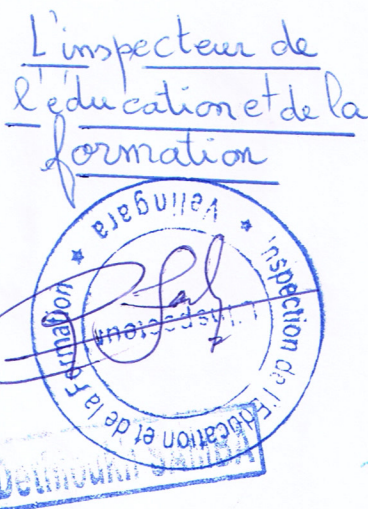 L'inspecteur de
l'éducation et de la
formation
Inspection de l'Education et de la Formation
★ Velingara ★
L'Inspecteur
SAMBA